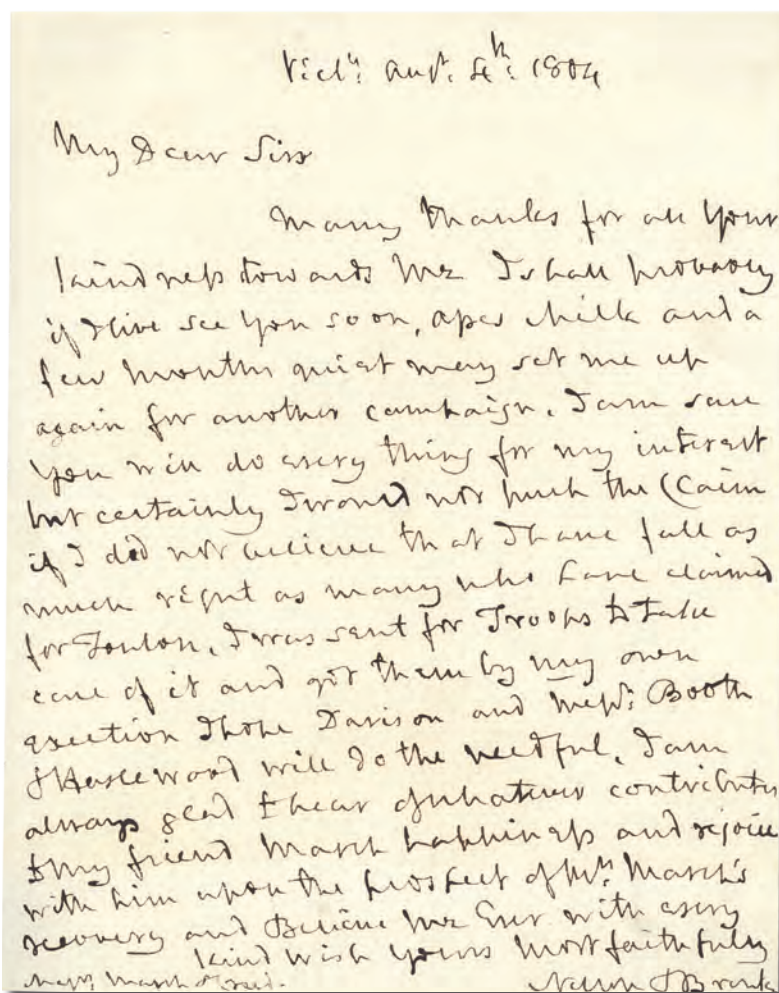 Victy: Augt: 4th: 1804
My Dear Sir
Many thanks for all Your
kindness towards Me I shall probably
if I live see You soon, apes Milk and a
few Months quiet may set me up
again for another campaign, I am sure
You will do every thing for my interest
but certainly I would not push the Claim
if I did not believe that I have full as
much right as many who have claimed
for Toulon, I was sent for Troops to take
care of it and got them by my own
exertion I hope Davison and Messrs: Booth
& Haslewood will do the needful, I am
always glad to hear of whatever contributes
to My friend March happiness and rejoice
with him upon the prospect of Mrs: March's
recovery and Believe Me Ever with every
kind wish Yours Most faithfully
Messrs: Marsh &
Nelson & Bronte